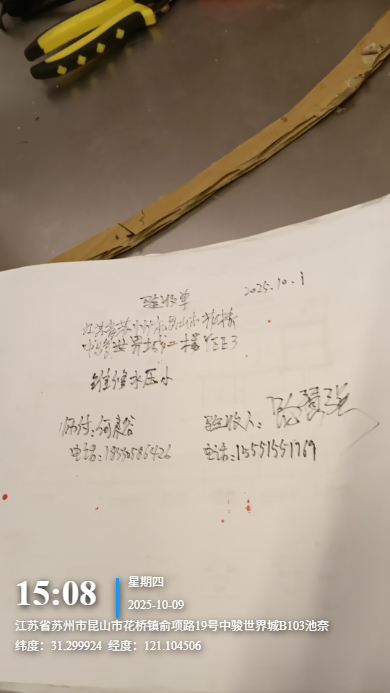 验收单
2025.10.1
江苏省苏州市昆山市花桥
中骏世界城二楼
维修水压小
师付:何良谷
验收人:
电话:
电话:15551551769
15:08
星期四
2025-10-09
江苏省苏州市昆山市花桥镇俞项路19号中骏世界城B103池奈
纬度:31.299924 经度:121.104506